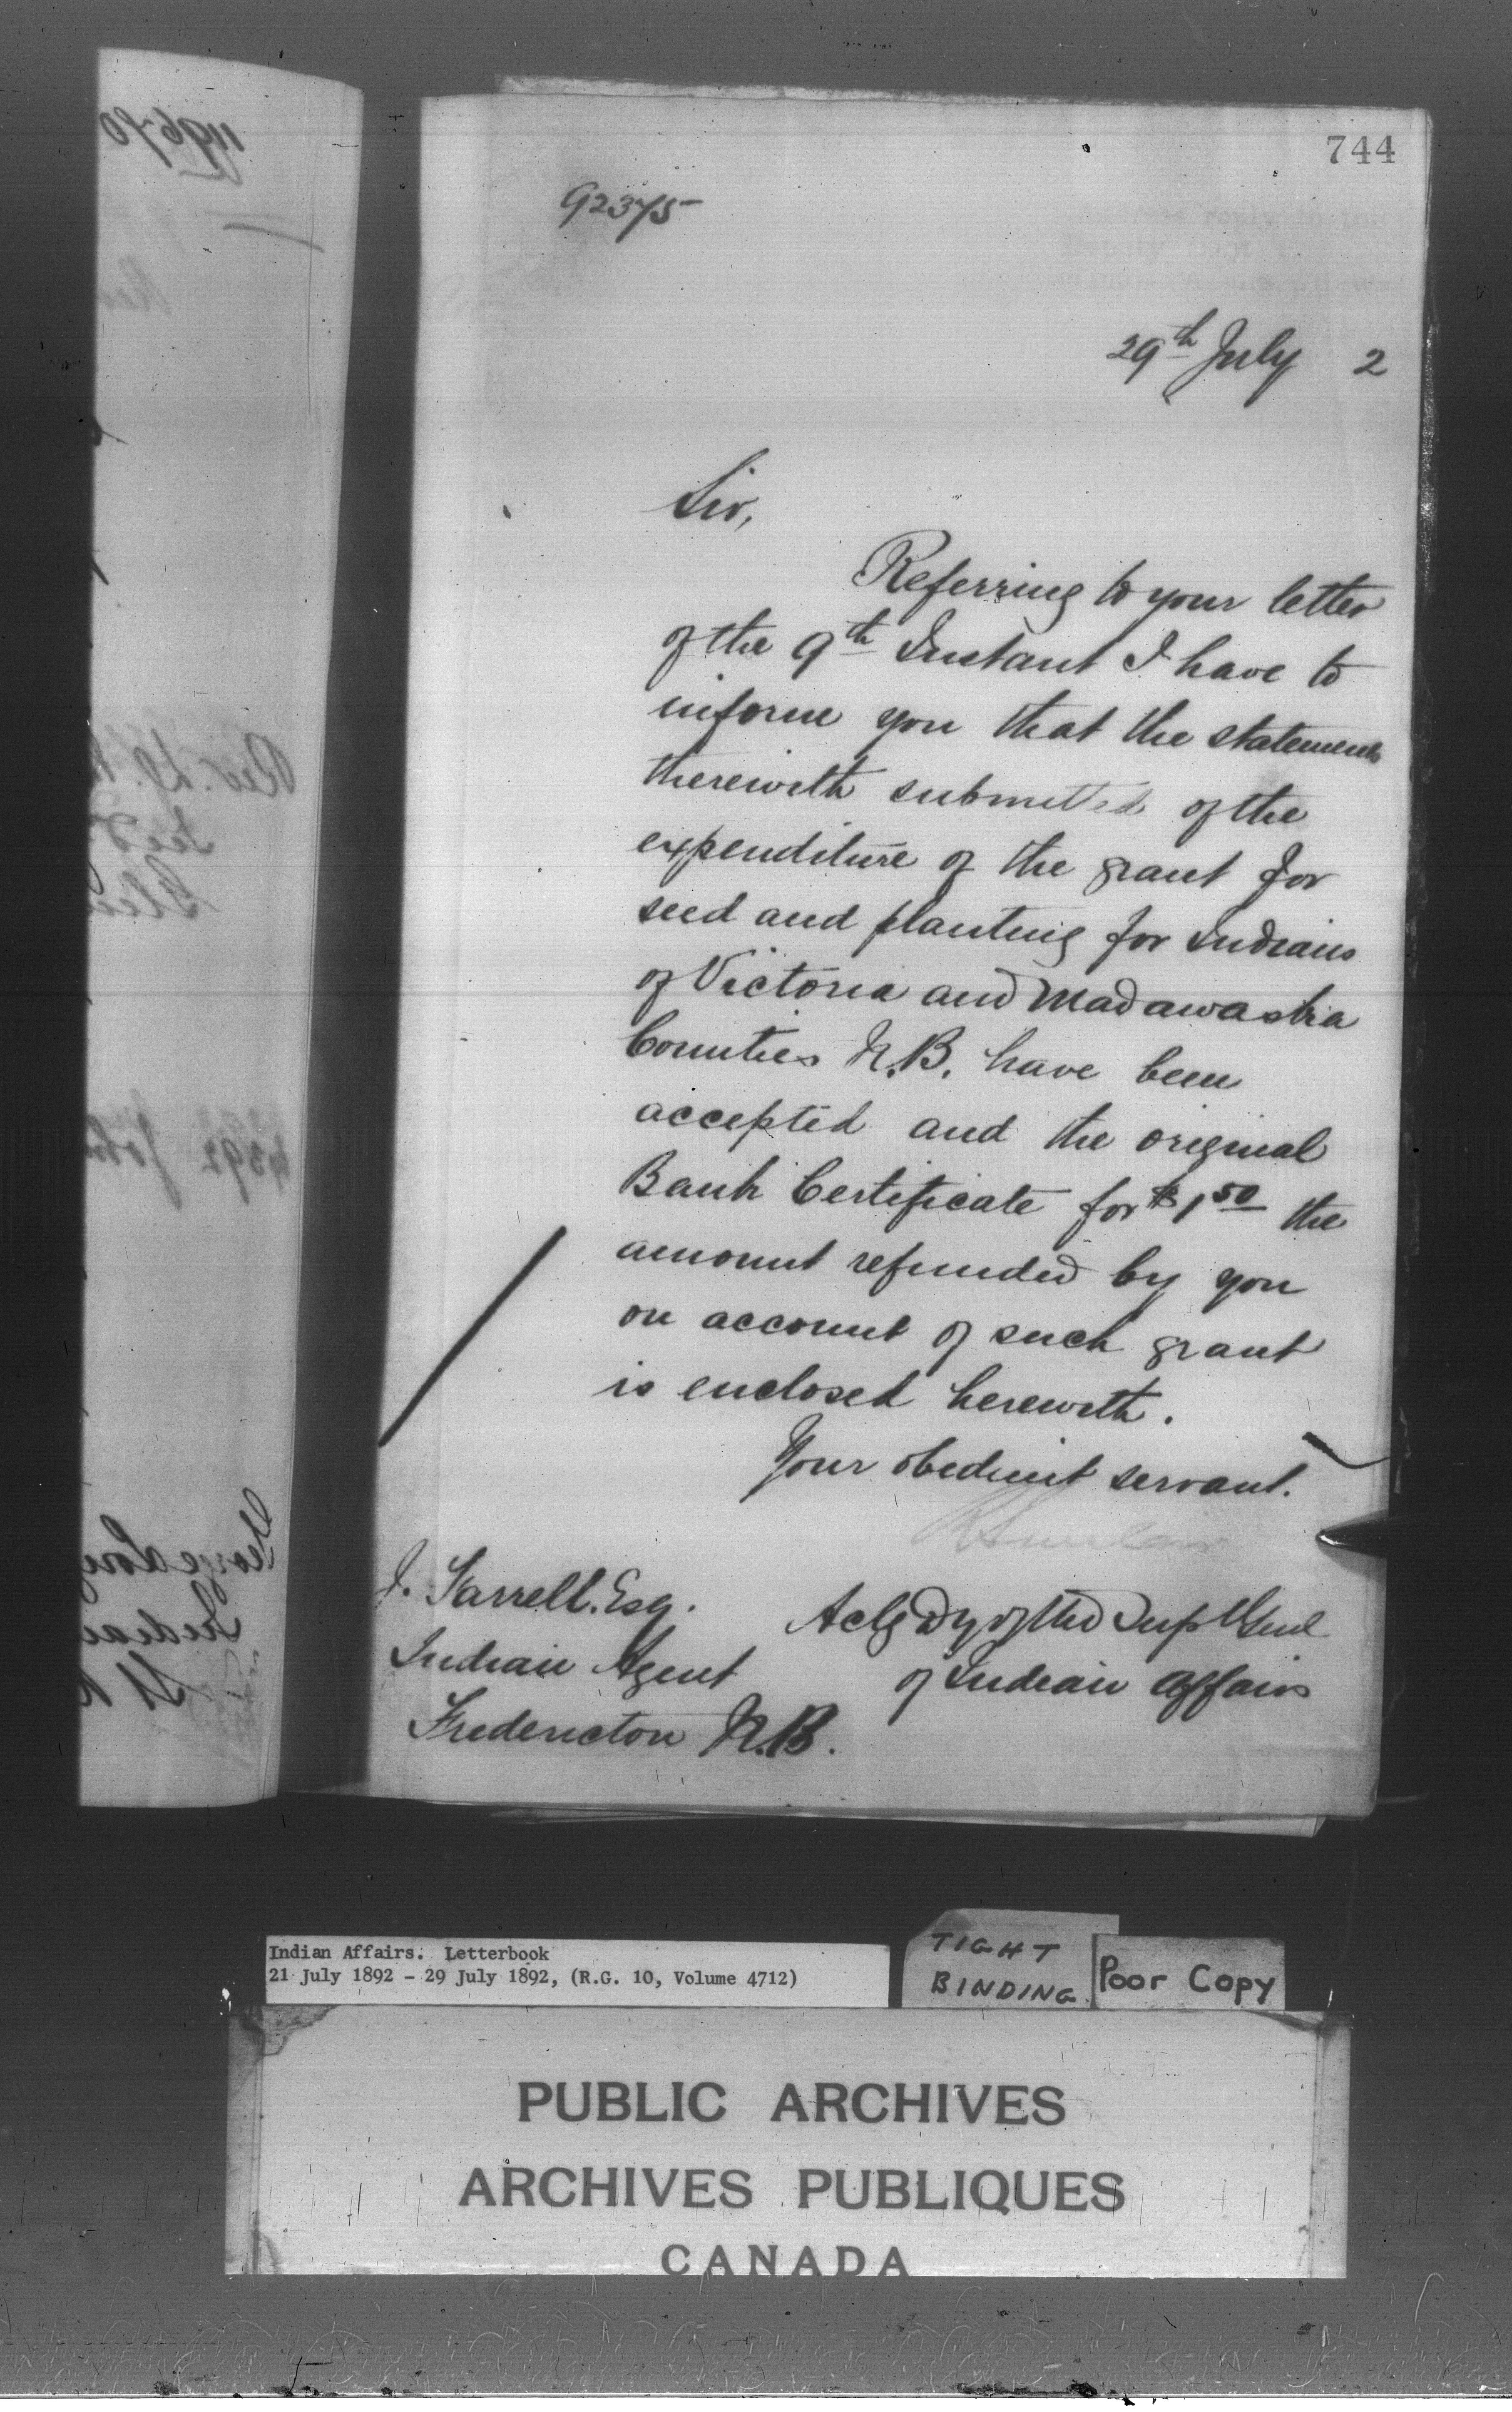 744
92375
29th July 2
Sir,
Referring to your letter
of the 9th Instant I have to
inform you that the statements
therewith submitted of the
expenditure of the grant for
seed and planting for Indians
of Victoria and Madawaska
Counties N.B. have been
accepted and the original
Bank Certificate for $1.50 the
amount refunded by you
on account of such grant
is enclosed herewith.
Your obedient servant.
R Sinclair
J. Farrell. Esq.
Indian Agent
Fredericton N.B.
Actg Dy of the Supt Genl
of Indian Affairs
Indian Affairs. Letterbook
21 July 1892 - 29 July 1892, (R.G. 10, Volume 4712)
TIGHT
BINDING
Poor Copy
PUBLIC ARCHIVES
ARCHIVES PUBLIQUES
CANADA